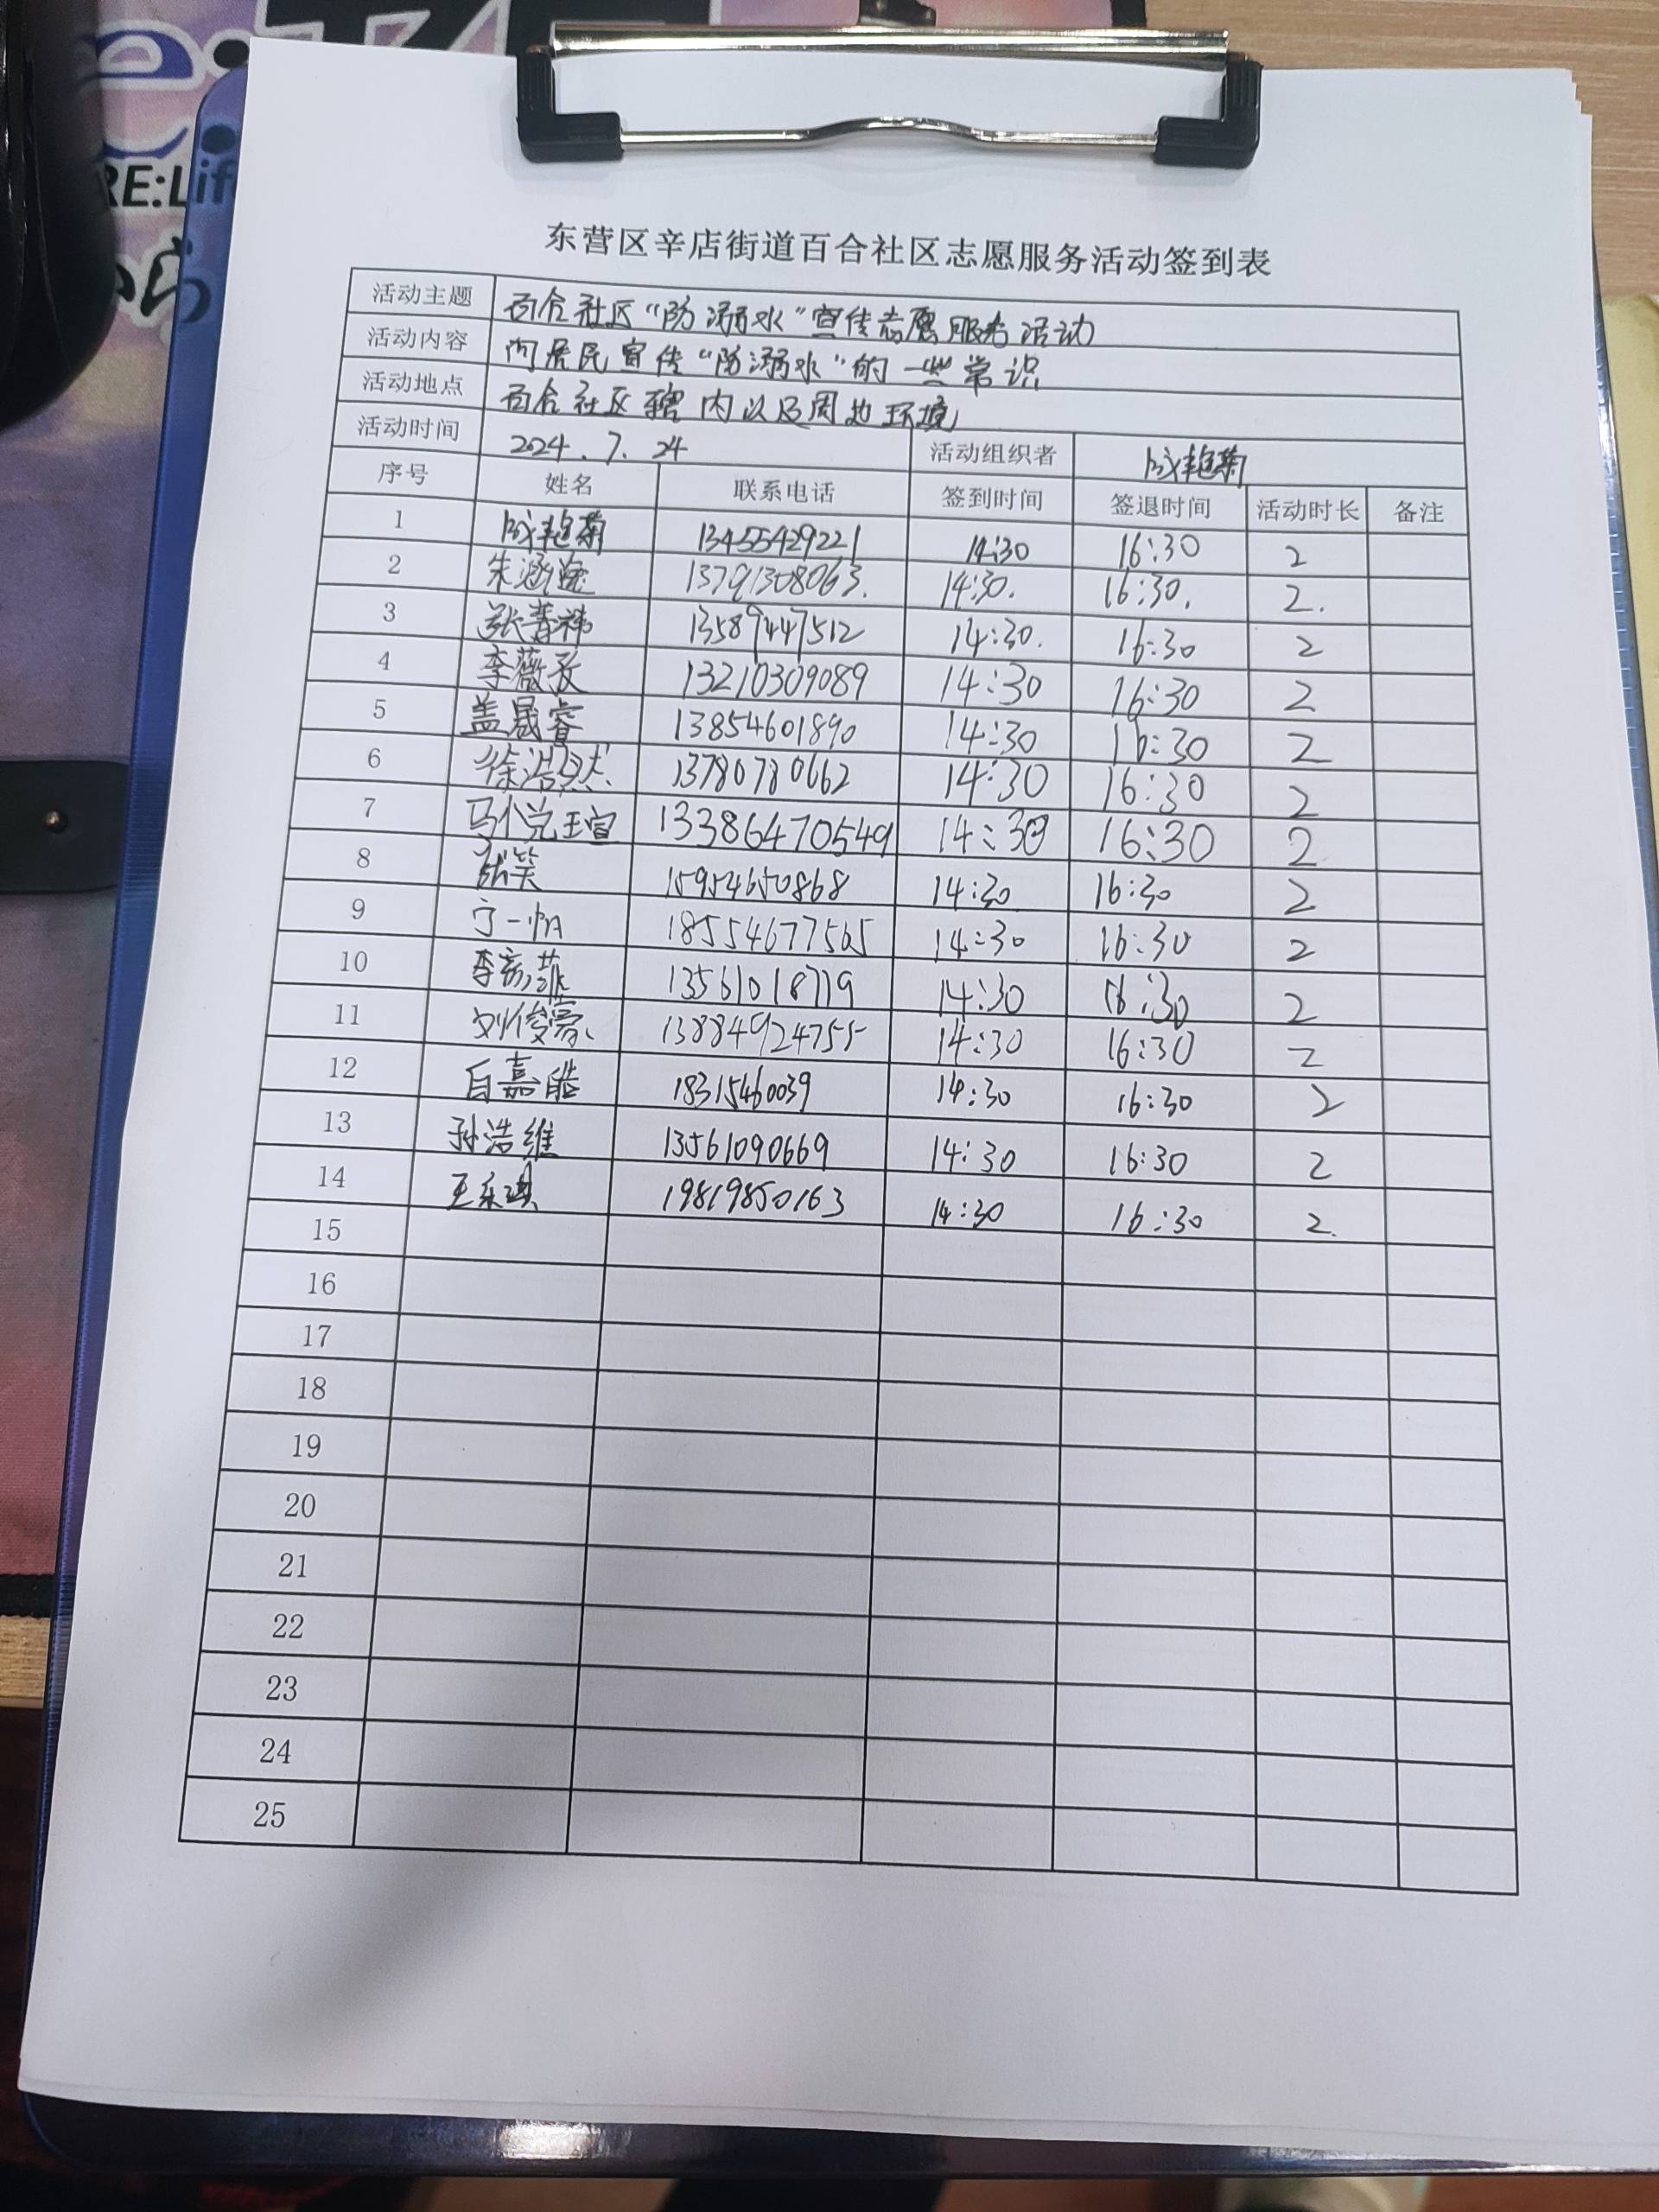 RE:Lif
东营区辛店街道百合社区志愿服务活动签到表
活动主题 百合社区“防溺水”宣传志愿服务活动
活动内容 向居民宣传“防溺水”的一些常识
活动地点 百合社区辖内以及周边环境
活动时间 2024.7.24 活动组织者
序号 姓名 联系电话 签到时间 签退时间 活动时长 备注
1 13455429221 14:30 16:30 2
2 13791308063. 14:30. 16:30. 2.
3 13589447512 14:30. 16:30 2
4 13210309089 14:30 16:30 2
5 盖晟睿 13854601890 14:30 16:30 2
6 徐浩然 13780780662 14:30 16:30 2
7 13386470549 14:30 16:30 2
8 张笑 15954650868 14:30 16:30 2
9 宁一帆 18554677565 14:30 16:30 2
10 13561018719 14:30 16:30 2
11 刘俊豪 13884924755 14:30 16:30 2
12 白嘉皓 18315460039 14:30 16:30 2
13 孙浩维 13561090669 14:30 16:30 2
14 19819850163 14:30 16:30 2.
15
16
17
18
19
20
21
22
23
24
25